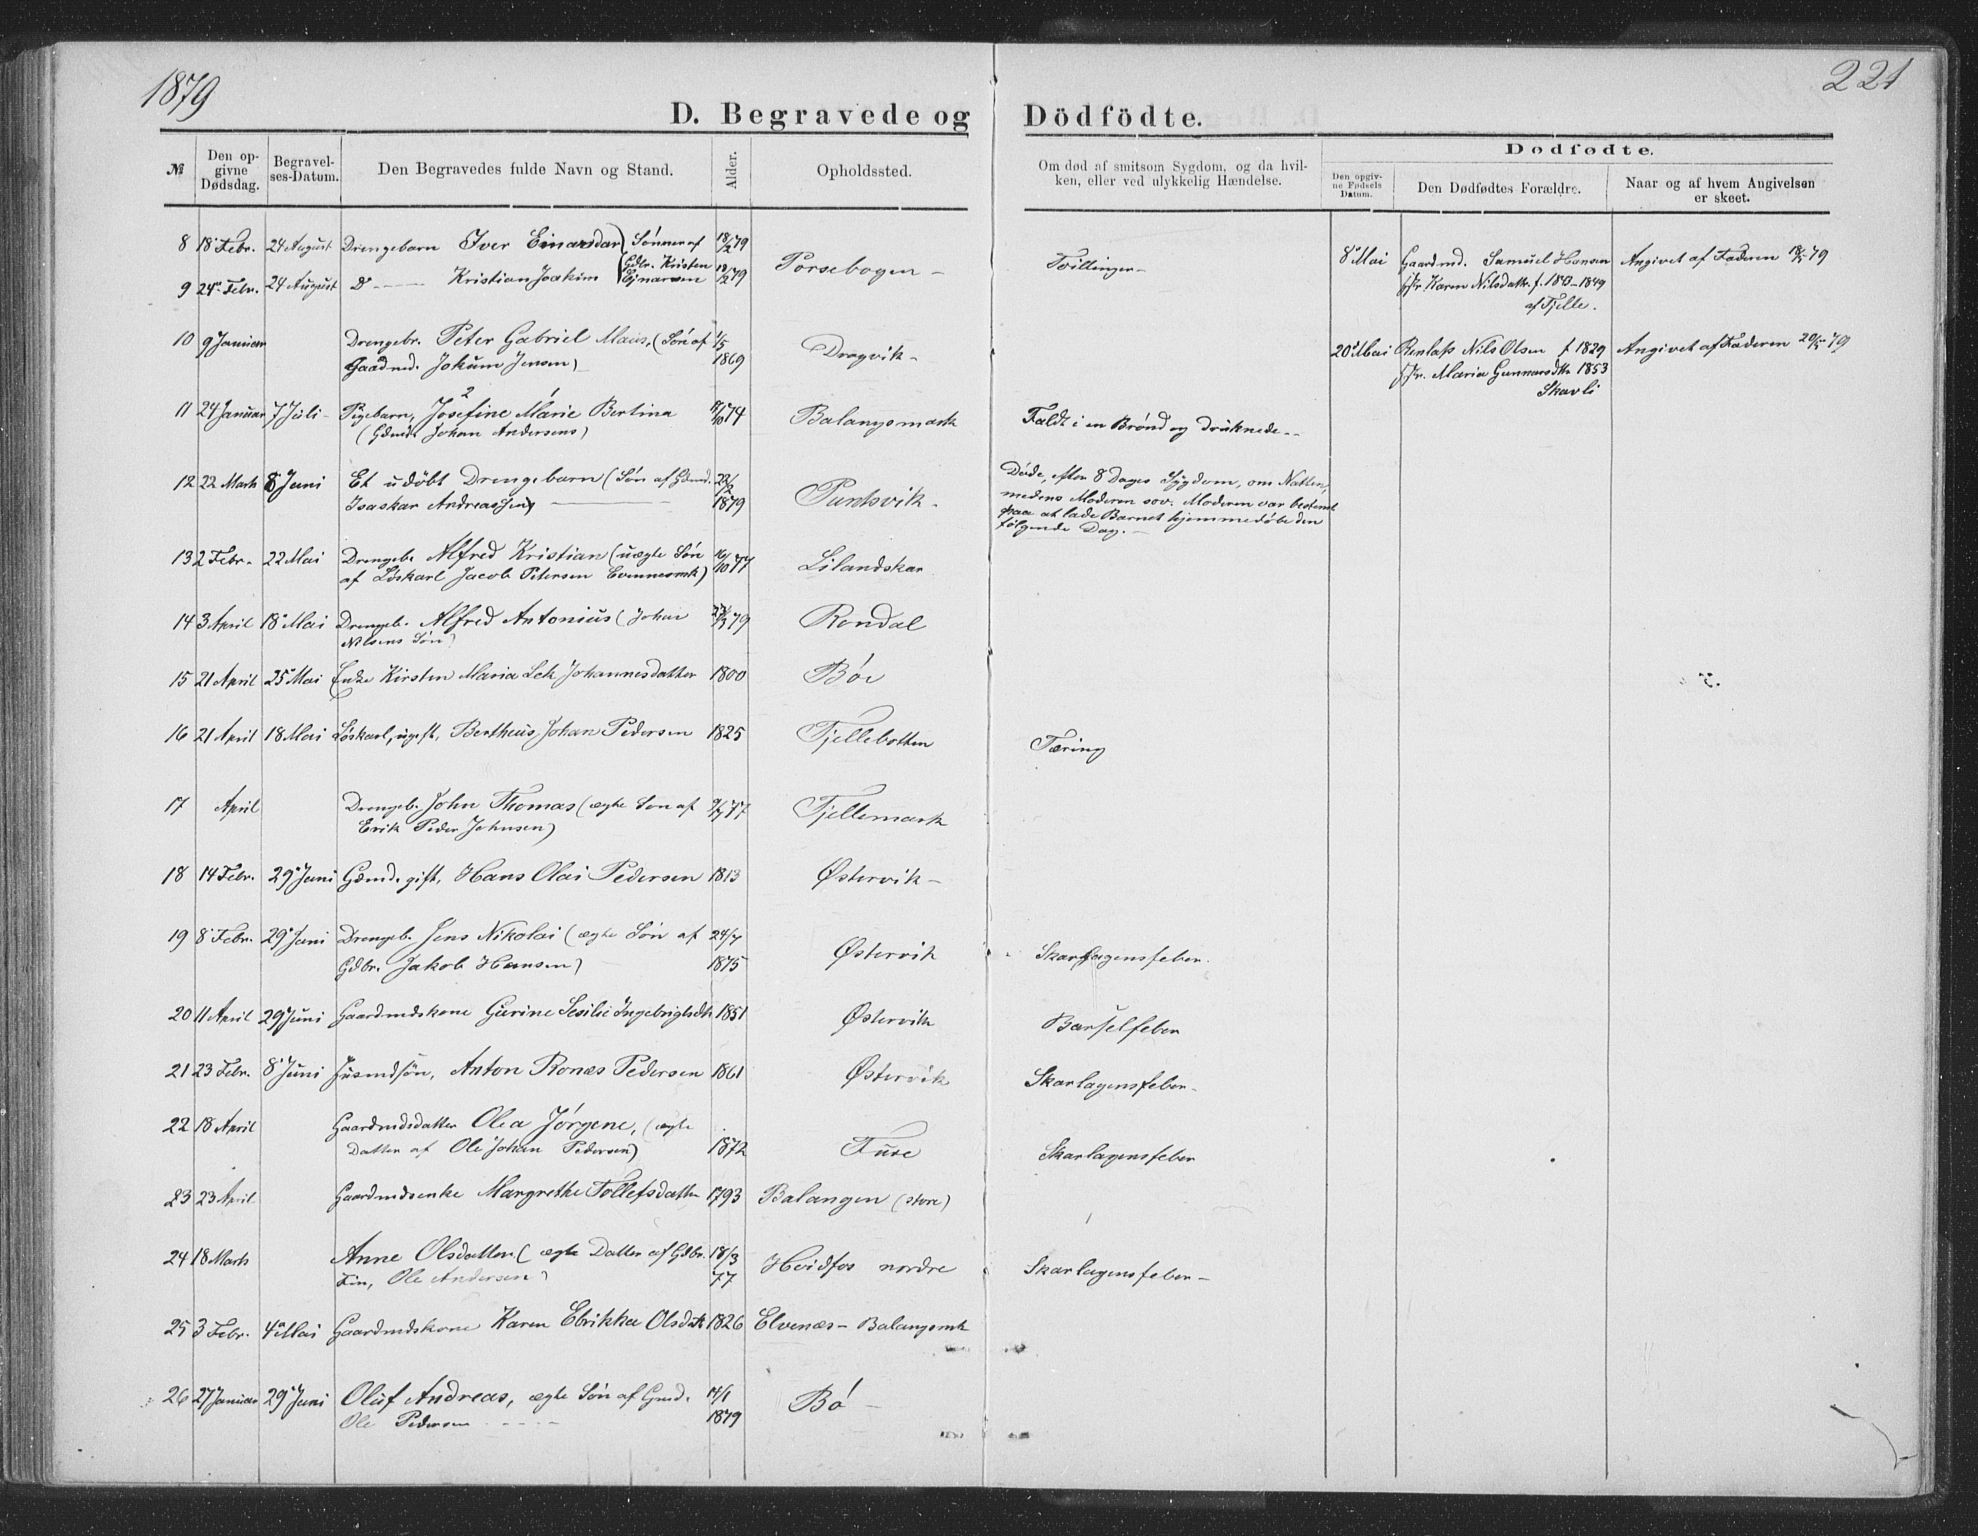 1879
221
D. Begravede og Dödfödte.
№
Den op-
givne
Dødsdag.
Begravel-
ses-Datum.
Den Begravedes fulde Navn og Stand.
Alder.
Opholdssted.
Om død af smitsom Sygdom, og da hvil-
ken, eller ved ulykkelig Hændelse.
Dødfødte.
Den opgiv-
ne Fødsels
Datum.
Den Dødfødtes Forældre.
Naar og af hvem Angivelsen
er skeet.
8 18 Febr. 24 August Drengebarn Iver Einarsdar (Sønner af 18/2 79 Porsebogen - Tvillinger -
9 24 Febr. 24 August D° Kristian Joakim Gdbr. Kristen Ejnarsen 18/2 79
8 Mai Gaardmd. Samuel Hansen Angivet af Faderen 18/5 79
Karen Nilsdatr. f. 1840 - 1849
af Fjelle.
10 9 Januar Drengebr. Peter Gabriel Maus, (Søn af 1/5 Dragvik -
Gaadmd. Jokum Jensen) 1869
20 Mai Nils Olsen f 1829 Angivet af Faderen 20/5 79
Maria Gunnarsdtr 1853
Skavli
11 24 Januar 7 Juli - Pigebarn, Josefine Marie Bertina 17/10 74 Balangsmark Faldt i en Brønd og druknede -
(Gdmd. Johan Andersens)
12 22 Marts 8 Juni Et udöbt Drengebarn (Søn af Gdmd. 22/2 Puntsvik -
Isaskar Andreassen) 1879
Døde, efter 8 Dages Sygdom, om Natten,
medens Moderen sov. Moderen var bestemt
paa at lade Barnet hjemmedøbe den
følgende Dag. -
13 2 Febr. 22 Mai Drengeb. Alfred Kristian (uægte Søn 16/10 77 Lilandskar
af Löskarl Jacob Petersen Evenesmk)
14 3 April 18 Mai Drengeb. Alfred Antonius (Johan 79 Rondal
Nilsens Søn)
15 21 April 25 Mai Enke Kirsten Maria Johannesdatter 1800 Bøe
16 21 April 18 Mai Løskarl, ugift, Bertheus Johan Pedersen 1825 Fjellebotten Tæring
17 April Drengeb. John Thomas (ægte Søn af 9/7 77 Fjellemark
Erik Peder Johnsen)
18 14 Febr. 29 Juni Gdmd. gift, Hans Olai Pedersen 1813 Østervik -
19 8 Febr. 29 Juni Drengeb. Jens Nikolai (ægte Søn af 24/7 Østervik Skarlagensfeber.
Gdbr. Jakob Hansen) 1875
20 11 April 29 Juni Gaardmdskone Gurine Sesilie Ingebrigtsdtr 1851 Østervik Barselfeber
21 23 Febr. 8 Juni Husmdsøn, Anton Ronæs Pedersen 1861 Østervik Skarlagensfeber -
22 18 April Gaardmdsdatter Olea Jørgene, (ægte
Datter af Ole Johan Pedersen) 1872 Fure Skarlagensfeber
23 23 April Gaardmdsenke Margrethe Tollefsdatter 1793 Balangen (store)
24 18 Marts Anne Olsdatter (ægte Datter af Gdbr. 18/3 Hvidfos nordre Skarlagensfeber -
Fin, Ole Andersen) 77
25 3 Febr. 4 Mai Gaardmdskone Karen Ebrikka Olsdtr 1826 Elvenæs - Balangsmk
26 27 Januar 29 Juni Oluf Andreas, ægte Søn af Gmd. 14/1 Bø -
Ole Pedersen 1879